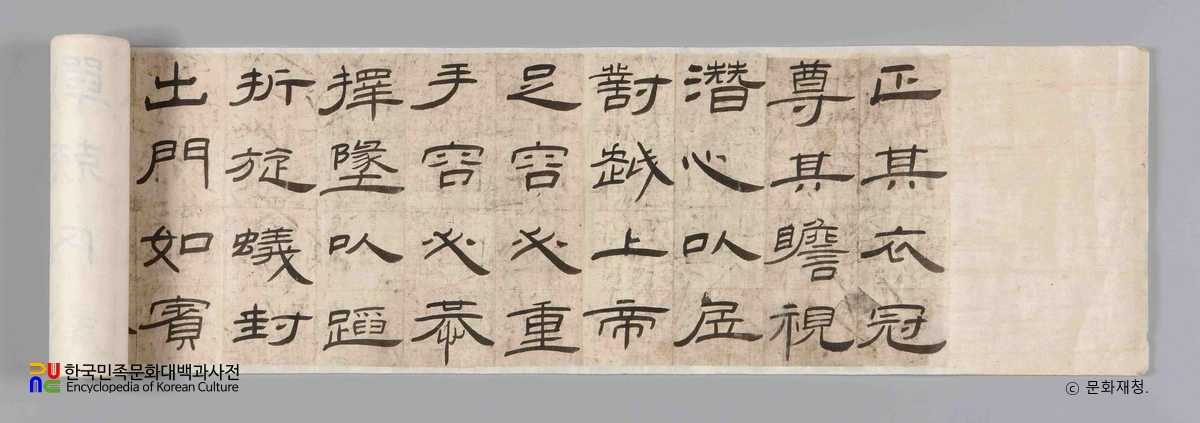 正其衣冠
尊其瞻視
潛心以居
對越上帝
足容必重
手容必恭
擇墬以蹈
折旋蟻封
出門如賓
한국민족문화대백과사전
Encyclopedia of Korean Culture
ⓒ 문화재청.